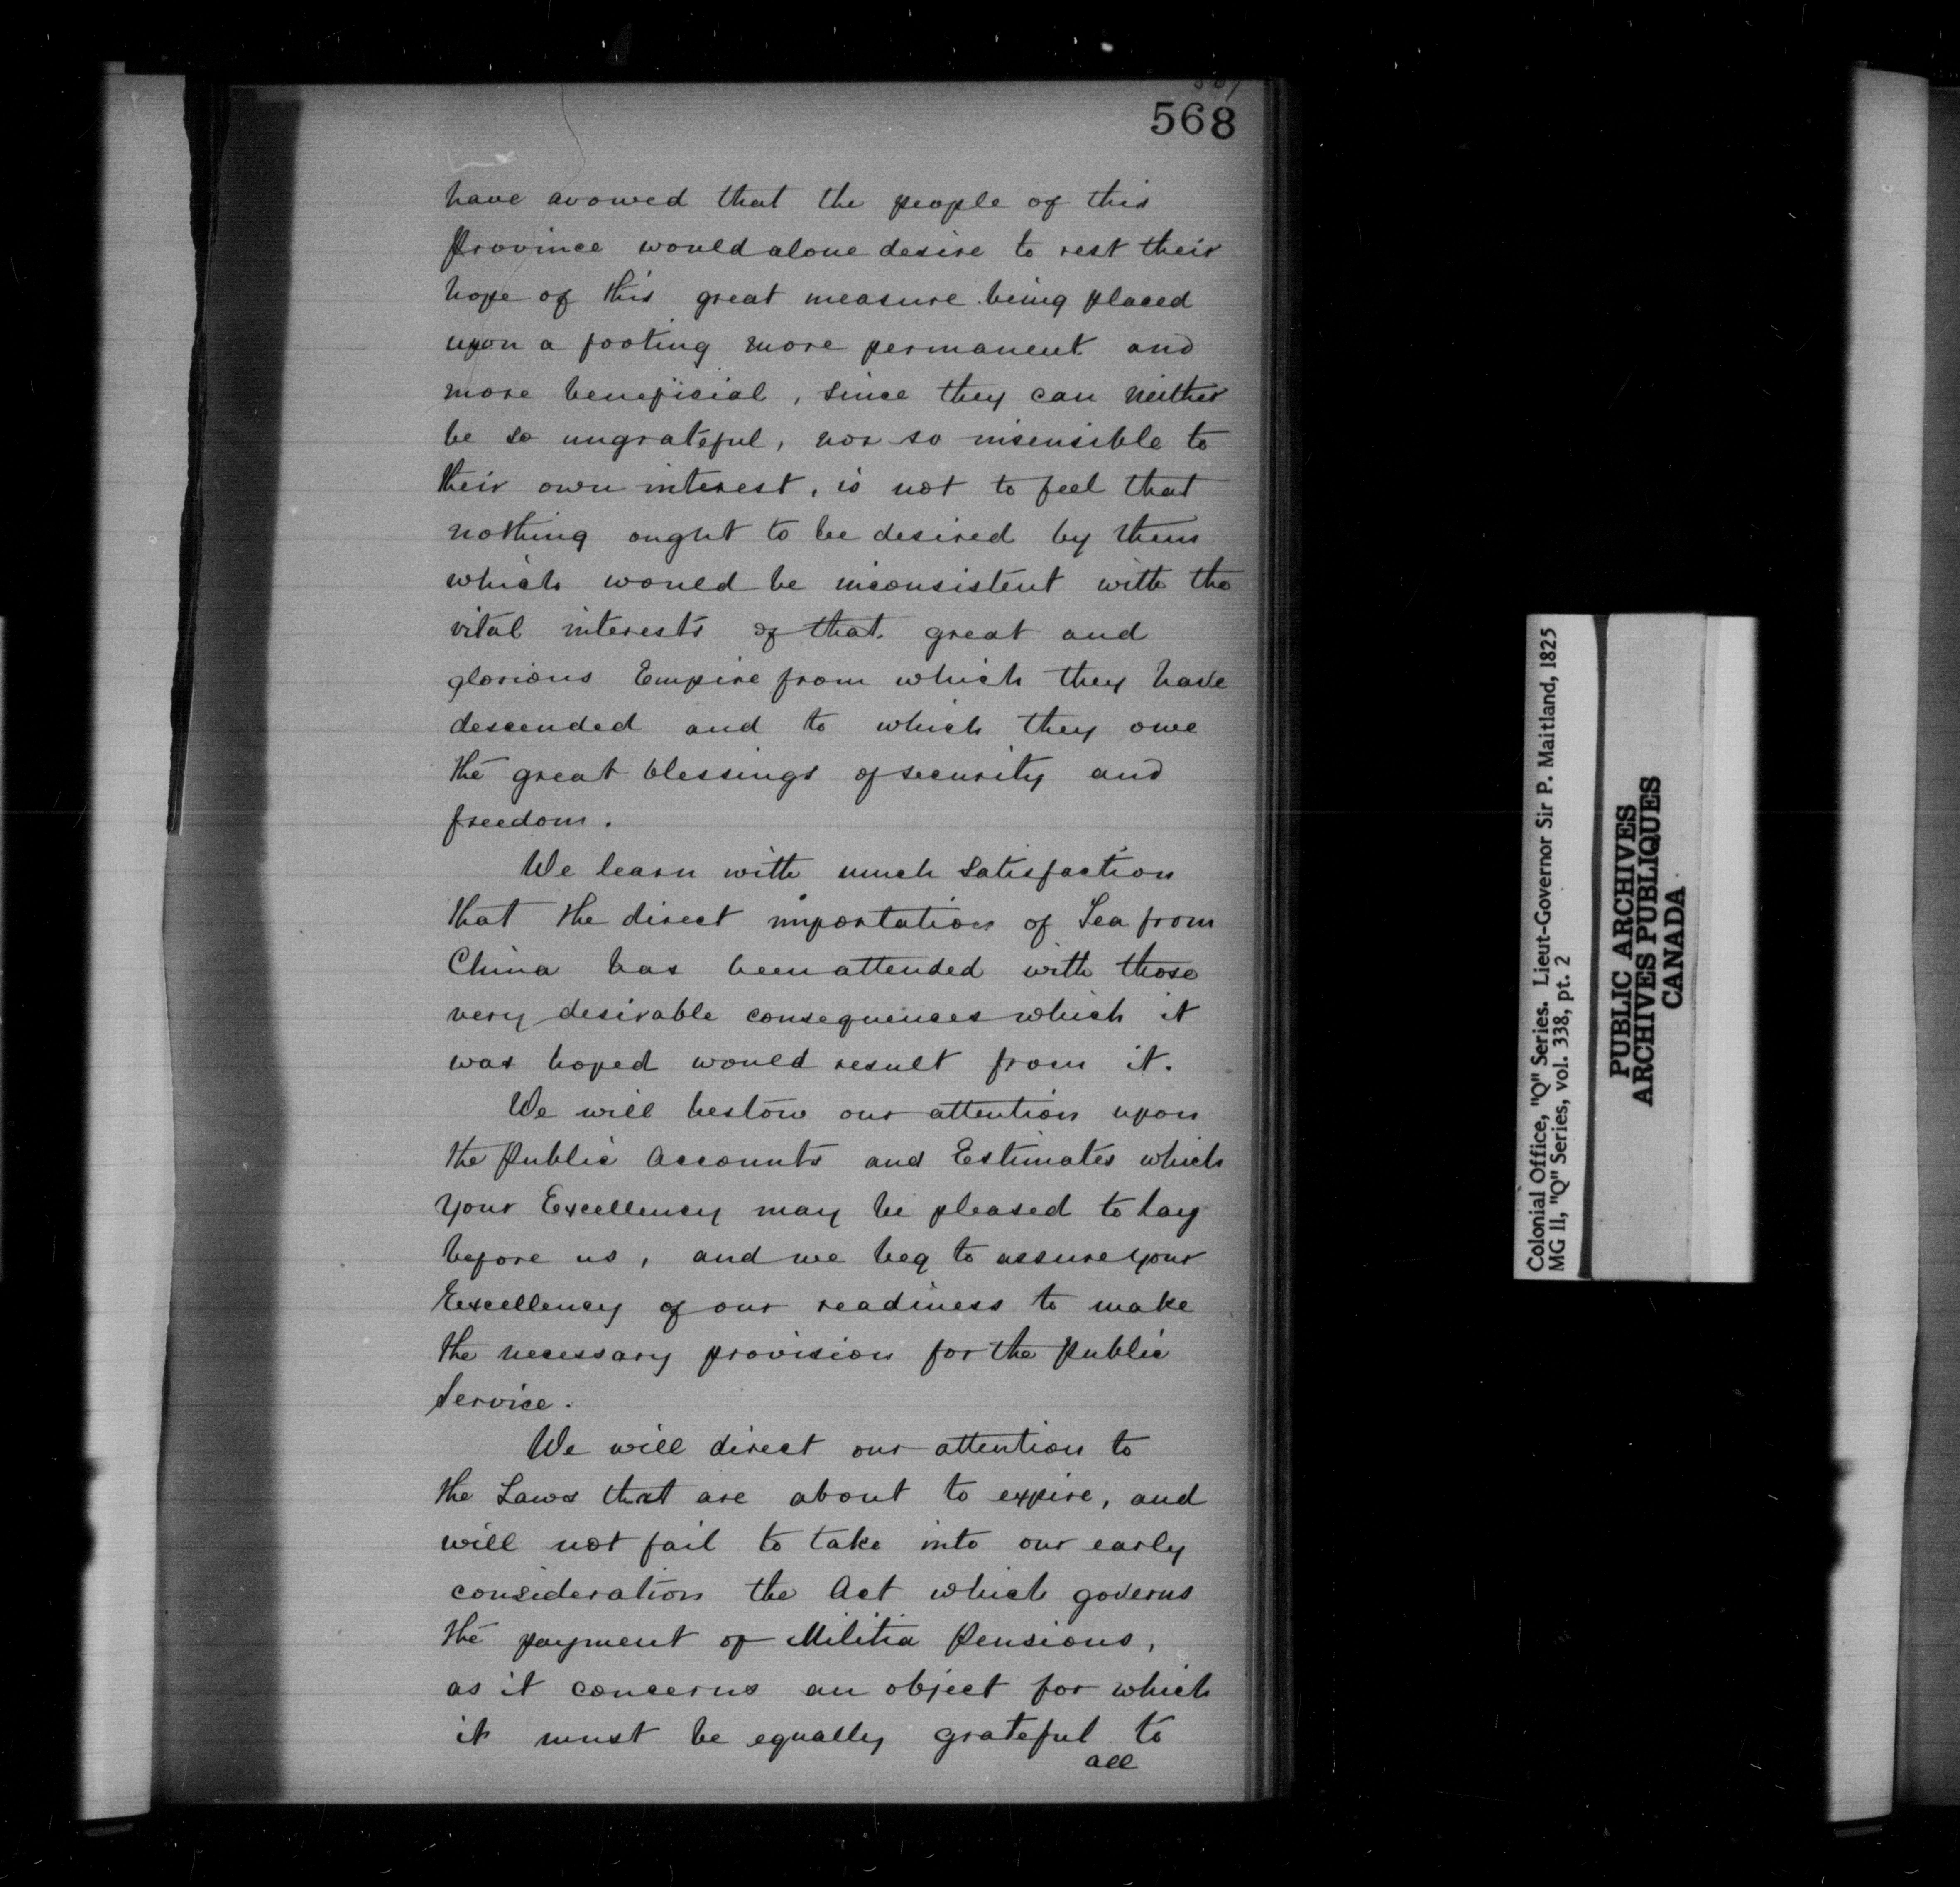 568
have avowed that the people of this
Province would alone desire to rest their
hope of this great measure being placed
upon a footing more permanent and
more beneficial, since they can neither
be so ungrateful, nor so insensible to
their own interest, is not to feel that
nothing ought to be desired by them
which would be inconsistent with the
vital interests of that great and
glorious Empire from which they have
descended and to which they owe
the great blessings of security and
freedom.
We learn with much satisfaction
that the direct importation of Tea from
China has been attended with those
very desirable consequences which it
was hoped would result from it.
We will bestow our attention upon
the Public Accounts and Estimates which
Your Excellency may be pleased to lay
before us, and we beg to assure your
Excellency of our readiness to make
the necessary provision for the Public
Service.
We will direct our attention to
the Laws that are about to expire, and
will not fail to take into our early
consideration the Act which governs
the payment of Militia Pensions,
as it concerns an object for which
it must be equally grateful to
all
Colonial Office, "Q" Series. Lieut-Governor Sir P. Maitland, 1825
MG 11, "Q" Series, vol. 338, pt. 2
PUBLIC ARCHIVES
ARCHIVES PUBLIQUES
CANADA